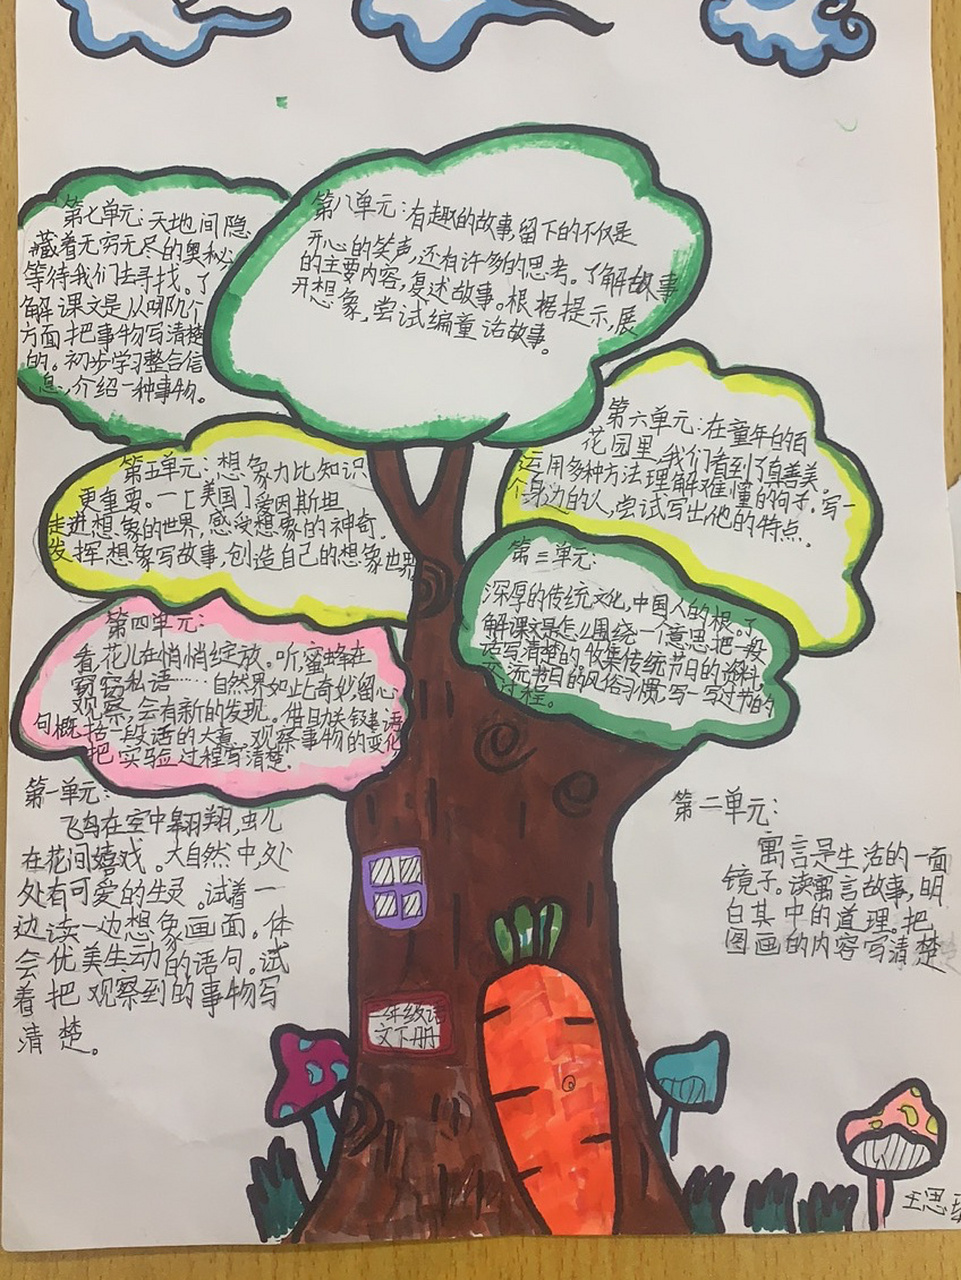 第七单元:天地间隐
藏着无穷无尽的奥秘,
等待我们去寻找。了
解课文是从哪几个
方面把事物写清楚
的。初步学习整合信
息,介绍一种事物。
第八单元:有趣的故事,留下的不仅是
开心的笑声,还有许多的思考。了解故事
的主要内容,复述故事。根据提示,展
开想象,尝试编童话故事。
第五单元:想象力比知识
更重要。一[美国]爱因斯坦
走进想象的世界,感受想象的神奇.
发挥想象写故事,创造自己的想象世界
第六单元:在童年的百
花园里,我们看到了真善美。
运用多种方法理解难懂的句子.写一
个身边的人,尝试写出他的特点.
第三单元:
深厚的传统文化,中国人的根。了
解课文是怎么围绕一个意思把一段
话写清楚的。收集传统节日的资料.
交流节日的风俗习惯,写一写过节的
过程。
第四单元:
看,花儿在悄悄绽放。听,蜜蜂在
窃窃私语……自然界如此奇妙留心
观察,会有新的发现。借助关键语
句概括一段话的大意,观察事物的变化,
把实验过程写清楚.
第一单元:
飞鸟在空中翱翔,虫儿
在花间嬉戏。大自然中,处
处有可爱的生灵。试着一
边读一边想象画面。体
会优美生动的语句。试
着把观察到的事物写
清楚。
第二单元:
寓言是生活的一面
镜子。读寓言故事,明
白其中的道理。把
图画的内容写清楚
年级语
文下册
王思